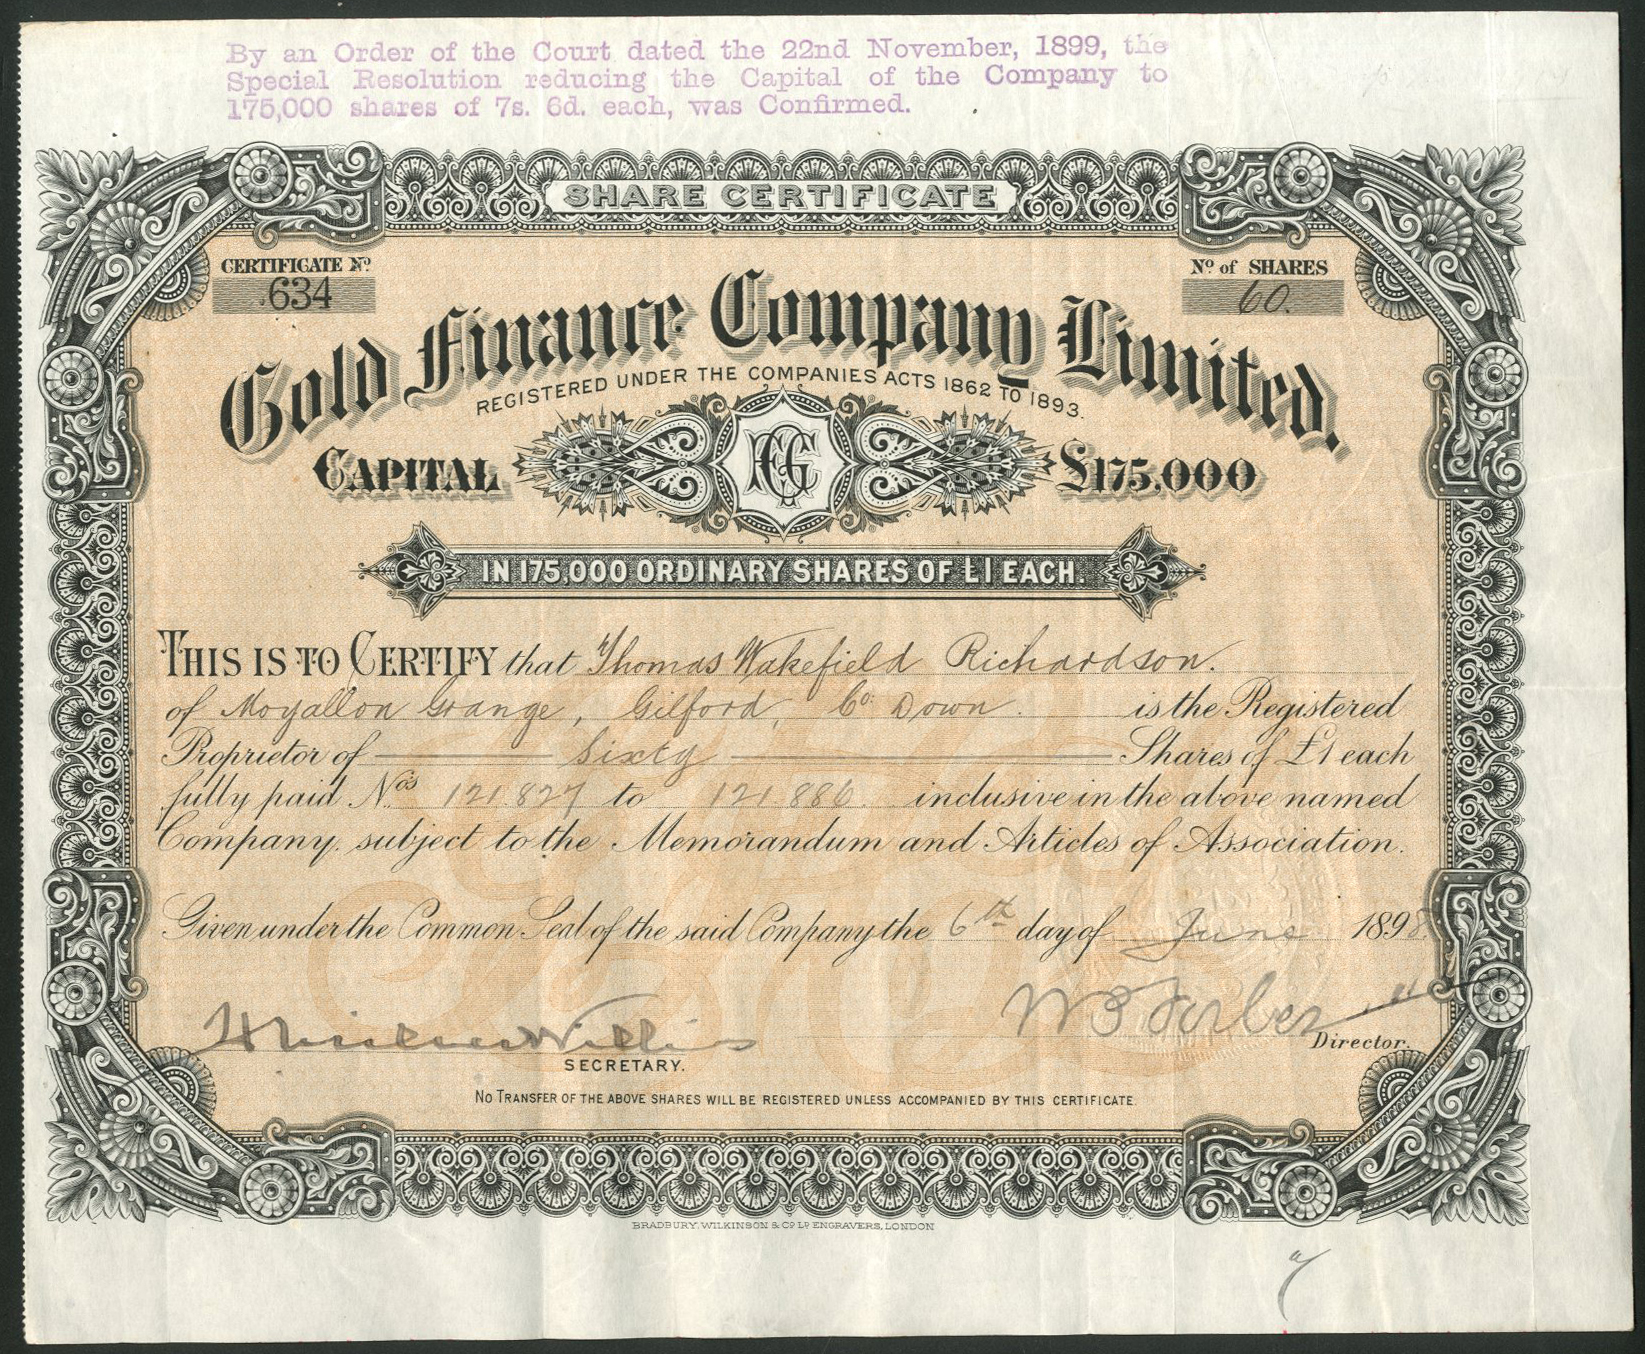 By an Order of the Court dated the 22nd November, 1899, the
Special Resolution reducing the Capital of the Company to
175,000 shares of 7s. 6d. each, was Confirmed.
SHARE CERTIFICATE
CERTIFICATE Nº
634
Nº of SHARES
60.
Gold Finance Company Limited.
REGISTERED UNDER THE COMPANIES ACTS 1862 TO 1893.
CAPITAL £175,000
IN 175,000 ORDINARY SHARES OF £1 EACH.
THIS IS TO CERTIFY that Thomas Wakefield Richardson.
of Moyallon Grange, Gilford, Co. Down. is the Registered
Proprietor of Sixty Shares of £1 each
fully paid Nos 121.827 to 121.886. inclusive in the above named
Company, subject to the Memorandum and Articles of Association.
Given under the Common Seal of the said Company the 6th day of June 1898
Willis
W Forbes
Director.
SECRETARY.
NO TRANSFER OF THE ABOVE SHARES WILL BE REGISTERED UNLESS ACCOMPANIED BY THIS CERTIFICATE.
BRADBURY, WILKINSON & Cº Lº ENGRAVERS, LONDON